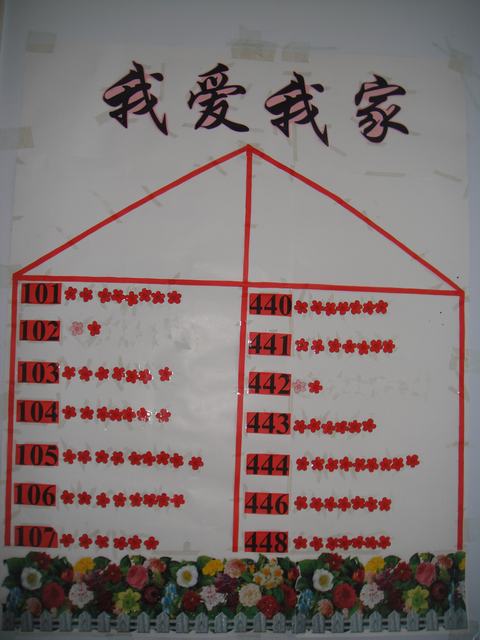 我爱我家
101
102
103
104
105
106
107
440
441
442
443
444
446
448